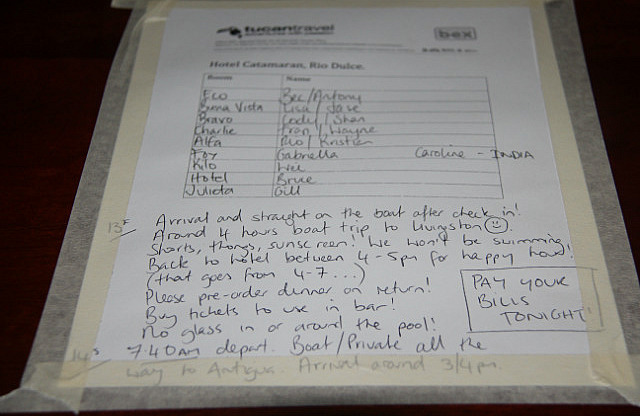 tucantravel
bex
Hotel Catamaran, Rio Dulce.
Room Name
Eco Bec/Antony
Buena Vista Lisa/Jase
Bravo Cody/Shan
Charlie Fran/Wayne
Alfa Rio/Kristien
Foy Gabriella Caroline - INDIA
Kilo Wei
Hotel Bruce
Julieta Gill
13th Arrival and straight on the boat after check in!
Around 4 hours boat trip to Livingston ☺.
Shorts, thongs, sunscreen! We won't be swimming
Back to hotel between 4-5pm for happy hour!
(that goes from 4-7...)
Please pre-order dinner on return!
Buy tickets to use in bar!
No glass in or around the pool!
PAY YOUR
BILLS
TONIGHT!
14th 7:40am depart. Boat/Private all the
way to Antigua. Arrival around 3/4pm.